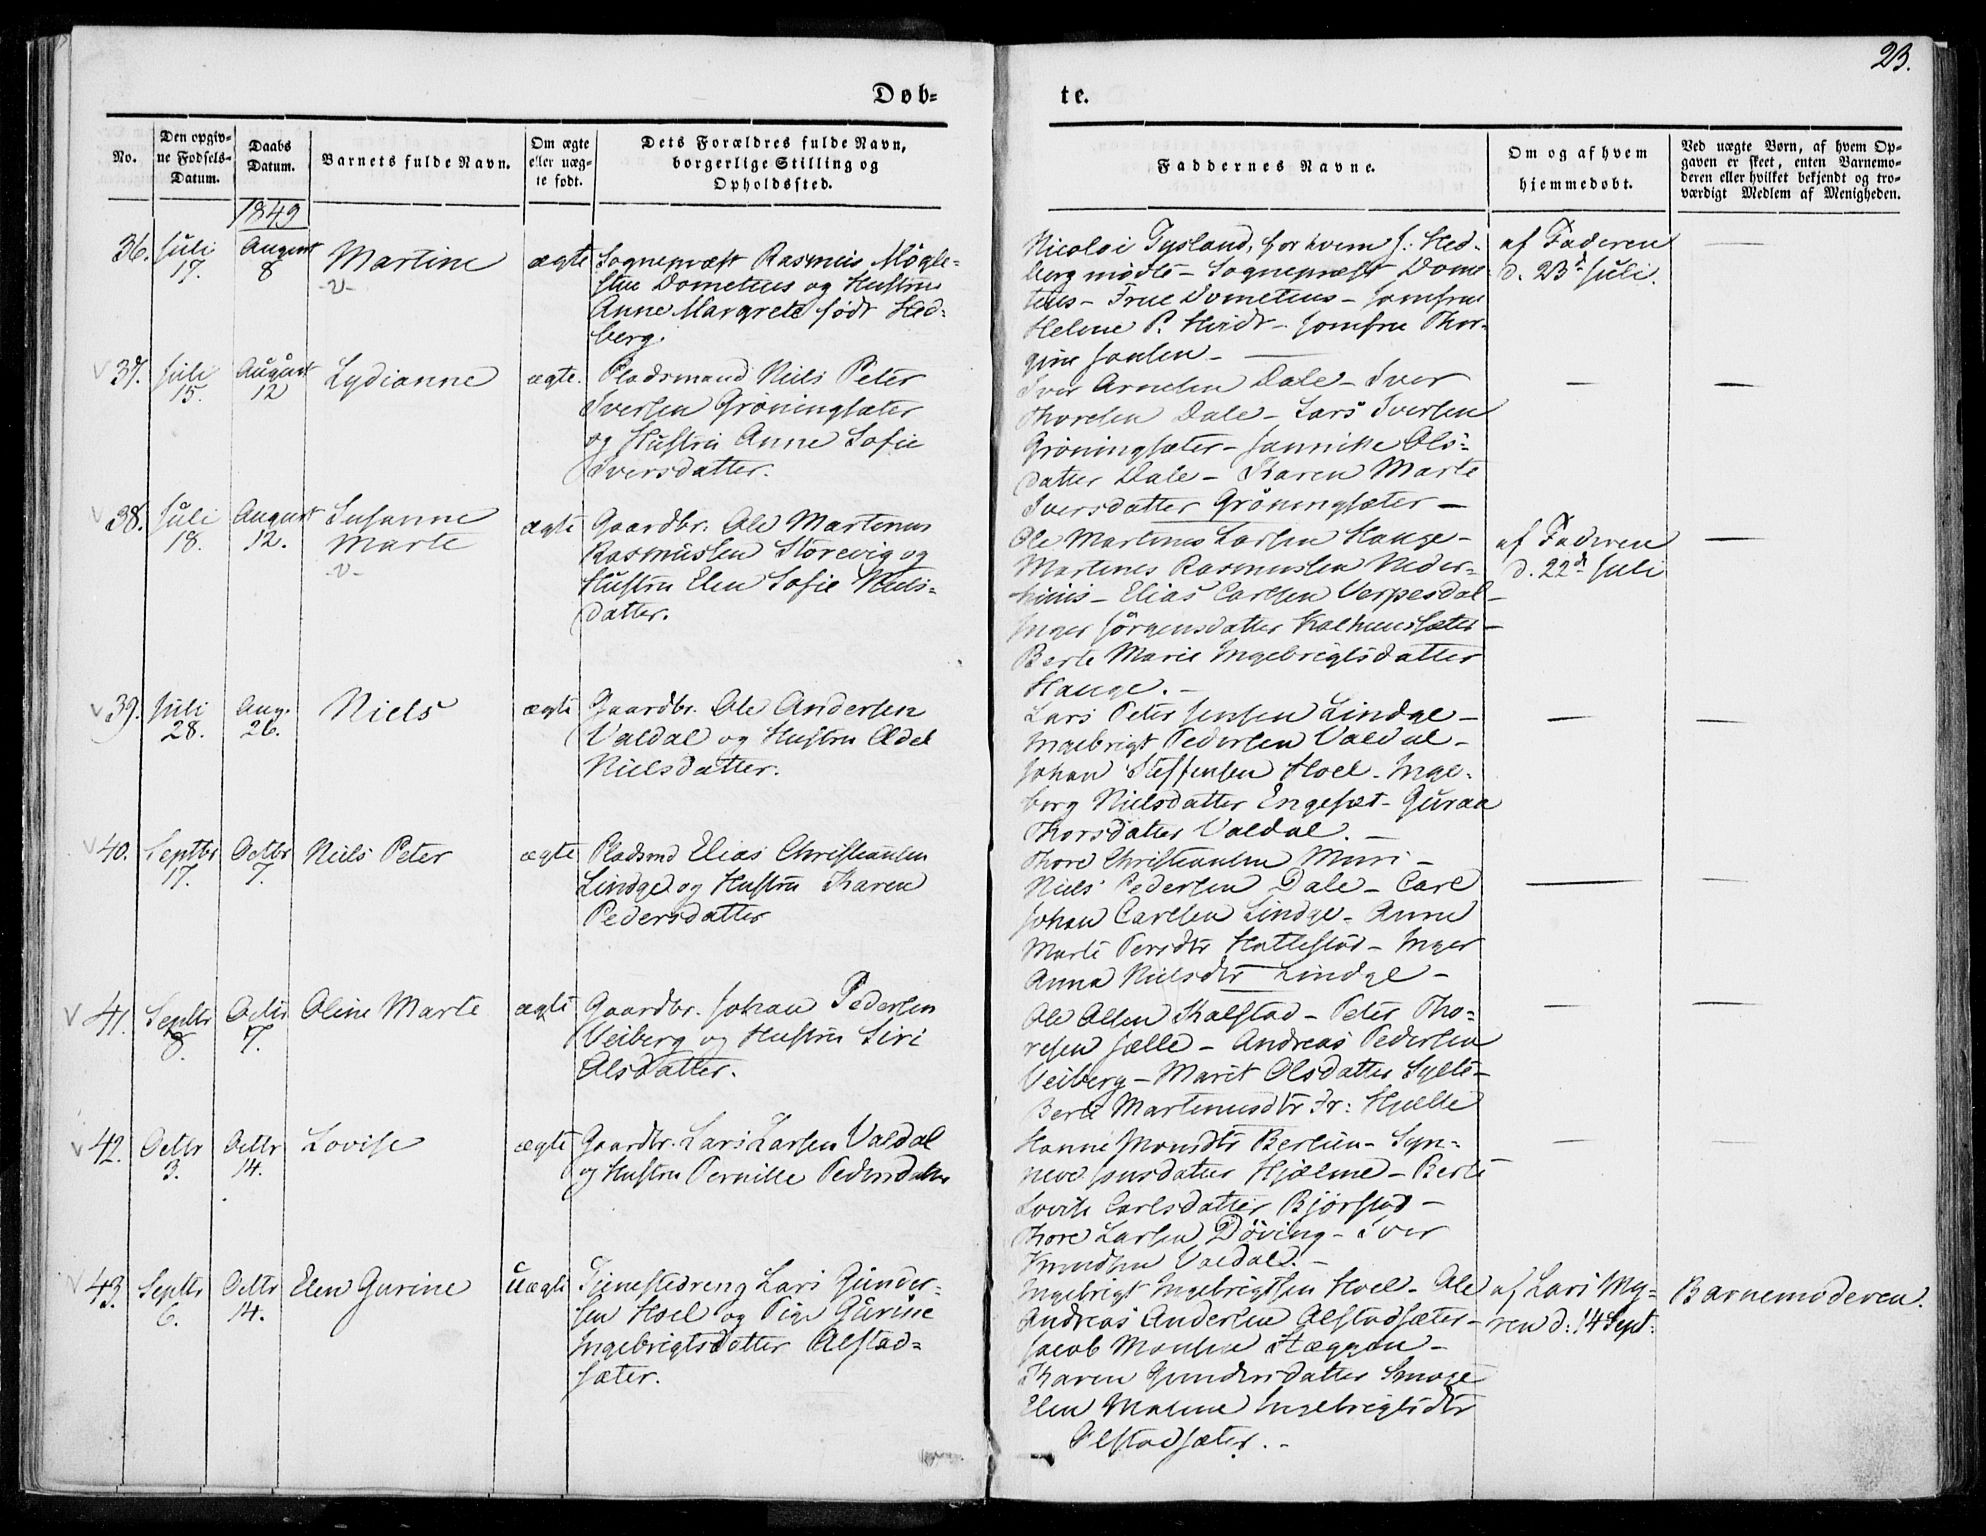 23.
Døb=
te.
No.
Den opgiv=
ne Fødsels=
Datum.
Daabs
Datum.
Barnets fulde Navn.
Om ægte
eller uæg=
te født.
Dets Forældres fulde Navn,
borgerlige Stilling og
Opholdssted.
Faddernes Navne.
Om og af hvem
hjemmedøbt.
Ved uægte Børn, af hvem Op=
gaven er skeet, enten Barnemo=
deren eller hvilket bekjendt og tro=
værdigt Medlem af Menigheden.
1849
36. Juli 17. August 8 Martine -v- ægte
Sognepræst Rasmus Møgle=
stue Dometius og Hustru
Anne Margrete født Hed=
berg.
Nicolai Tysland, for hvem J: Hed=
berg mødte - Sognepræst Dome=
tius - Frue Dometius - Jomfru
Helene P. Hvidt - Jomfru Thor=
gine Jansen -
af Faderen
d. 23d Juli.
37. Juli 15. August 12 Lydianne ægte.
Pladsmand Niels Peter
Iversen Grøningsæter
og Hustru Anne Sofie
Iversdatter.
Iver Arnesen Dale - Iver
Thoresen Dale - Lars Iversen
Grøningsæter - Jannike Ols=
datter Dale - Karen Marte
Iversdatter Grøningsæter -
38. Juli 18. August 12. Susanne Marte -v- ægte
Gaardbr. Ole Martinus
Rasmussen Storevig og
Hustru Elen Sofie Niels=
datter.
Ole Martinus Larsen Hauge -
Martines Rasmussen Neder=
huus - Elias Carlsen Verpesdal -
Inger Jørgensdatter Kalhussæter -
Berte Marie Ingebrigtsdatter
Hauge. -
af Faderen
d. 22d Juli
39. Juli 28. Aug. 26. Niels ægte
Gaardbr. Ole Andersen
Valdal og Hustru Adel
Nielsdatter.
Lars Peter Jensen Lindge -
Ingebrigt Pedersen Valdal -
Johan Steffensen Hoel - Inge=
borg Nielsdatter Engeset - Guraa
Thorsdatter Valdal. -
40. Septbr 17. Octbr 7. Niels Peter ægte
Pladsmd Elias Christiansen
Lindge og Hustru Karen
Pedersdatter
Thore Christiansen Muri -
Niels Pedersen Dale - Carl
Johan Carlsen Lindge - Anne
Marte Persdtr Hattestød - Inger
Anna Nielsdtr Lindge -
41. Septbr 8. Octbr 7. Oline Marte ægte
Gaardbr. Johan Pedersen
Veiberg og Hustru Siri
Olsdatter.
Ole Olsen Kalstad - Peter Tho=
resen Fælle - Andreas Pedersen
Veiberg - Marit Olsdatter Sylte -
Berte Martinusdtr Fr: Hjelle
42. Octbr 3. Octbr 14. Lovise ægte
Gaardbr. Lars Larsen Valdal
og Hustru Pernille Pedersdatter
Hanne Monsdtr Berlien - Syn=
neve Jensdatter Hjelme - Berte
Lovise Carlsdatter Bjørstad -
Thore Larsen Døving - Iver
Knudsen Valdal. -
43. Septbr 6. Octbr 14. Elen Gurine uægte
Tjenestedreng Lars Gunder=
sen Hoel og Pige Gurine
Ingebrigtsdatter Alstad=
sæter.
Ingebrigt Ingebrigtsen Hoel - Ole
Andreas Andersen Alstadsæter -
Jacob Monsen Hæggen -
Karen Gundersdatter Smoge
Elen Malene Ingebrigtsdtr
Alstadsæter. -
af Lars My=
ren d: 14 Sept:
Barnemoderen.